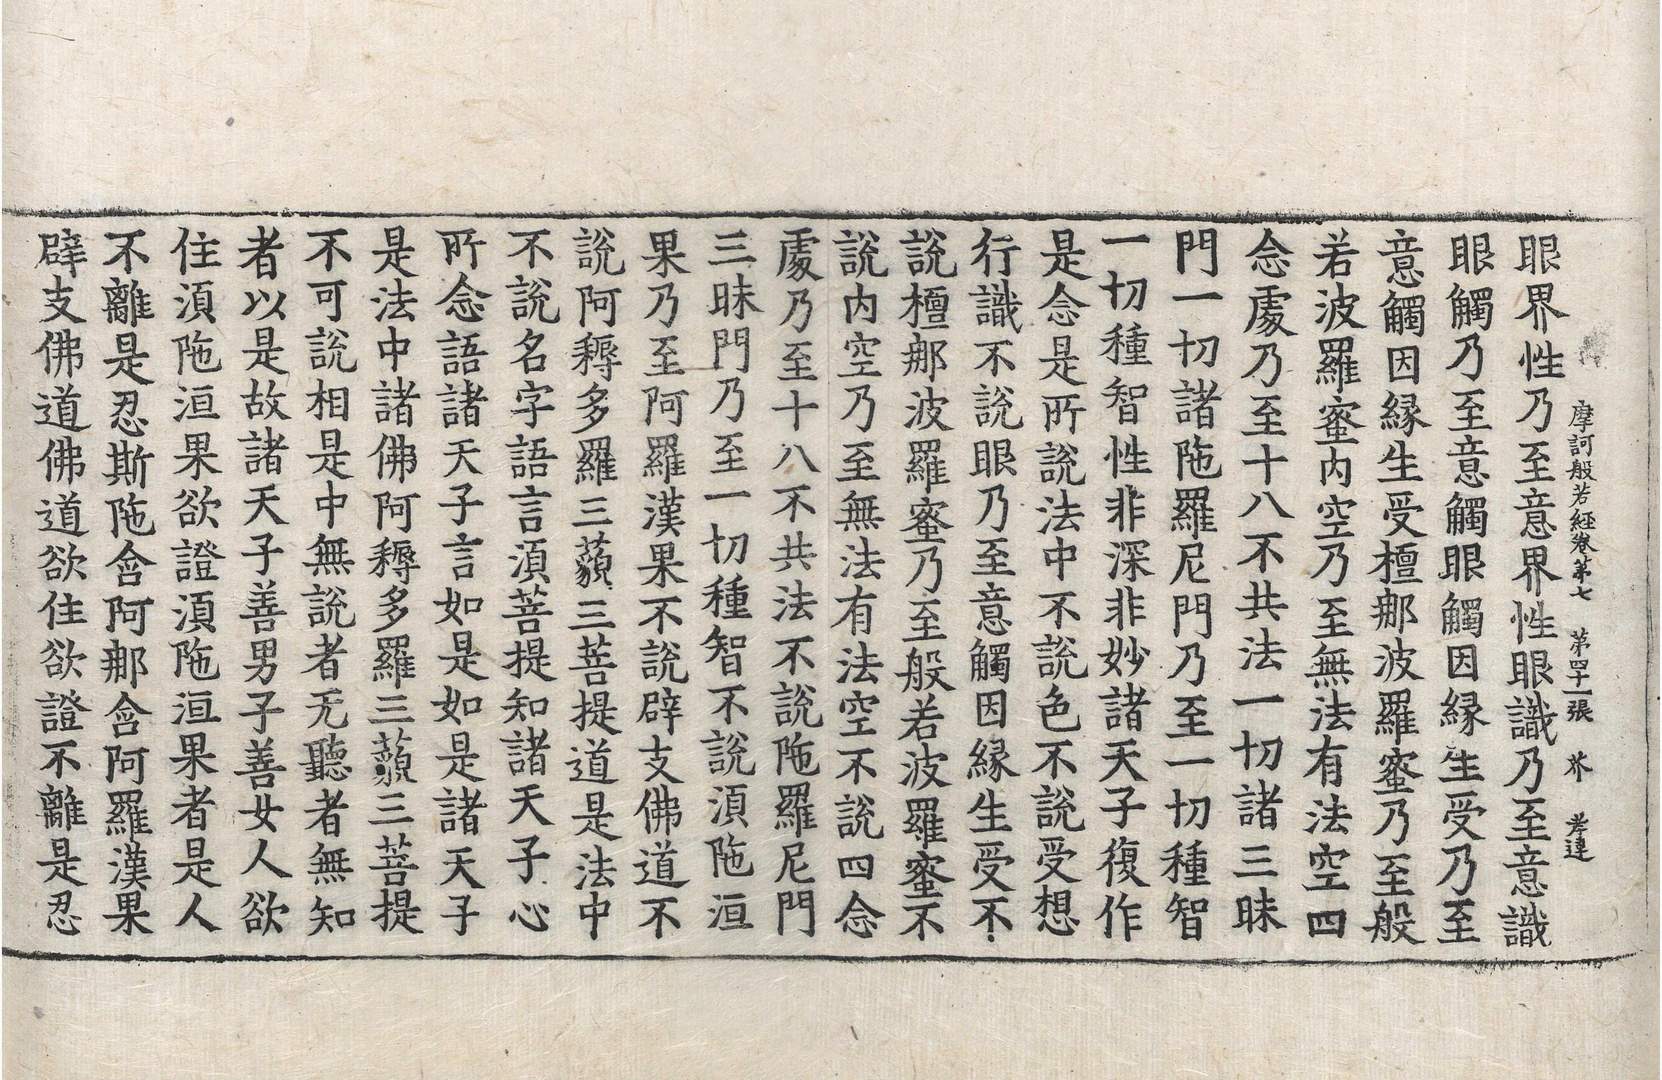 摩訶般若経卷第七 第四十一張 芥 孝達
眼界性乃至意界性眼識乃至意識
眼觸乃至意觸眼觸因緣生受乃至
意觸因緣生受檀那波羅蜜乃至般
若波羅蜜内空乃至無法有法空四
念處乃至十八不共法一切諸三昧
門一切諸陁羅尼門乃至一切種智
一切種智性非深非妙諸天子復作
是念是所說法中不說色不說受想
行識不說眼乃至意觸因緣生受不
說檀那波羅蜜乃至般若波羅蜜不
說内空乃至無法有法空不說四念
處乃至十八不共法不說陁羅尼門
三昧門乃至一切種智不說湏陁洹
果乃至阿羅漢果不說辟支佛道不
說阿耨多羅三藐三菩提道是法中
不說名字語言湏菩提知諸天子心
所念語諸天子言如是如是諸天子
是法中諸佛阿耨多羅三藐三菩提
不可說相是中無說者无聽者無知
者以是故諸天子善男子善女人欲
住湏陁洹果欲證湏陁洹果者是人
不離是忍斯陁含阿那含阿羅漢果
辟支佛道佛道欲住欲證不離是忍